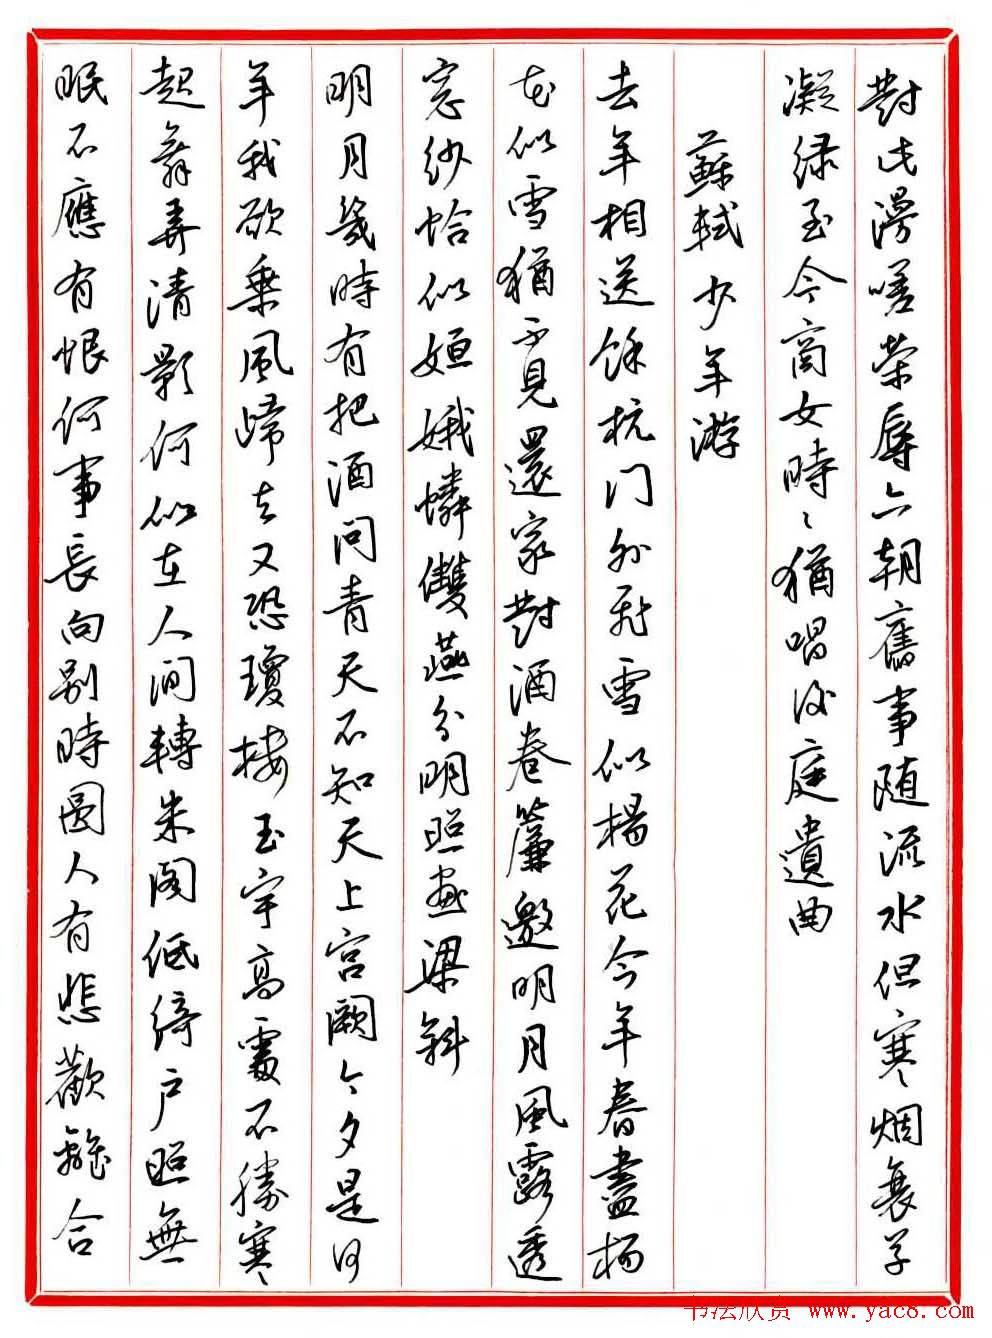 對此漫嗟榮辱六朝舊事随流水但寒烟衰草
凝绿至今商女時々猶唱後庭遺曲
蘇軾少年游
去年相送馀杭门外飛雪似楊花今年春盡楊
花似雪猶不見還家對酒卷簾邀明月風露透
窓紗恰似姮娥憐雙燕分明照画梁斜
明月幾時有把酒问青天不知天上宫阙今夕是何
年我欲乘風歸去又恐瓊樓玉宇高處不勝寒
起舞弄清影何似在人间轉朱阁低綺户照無
眠不應有恨何事長向别時圆人有悲歡離合
书法欣赏 www.yac8.com